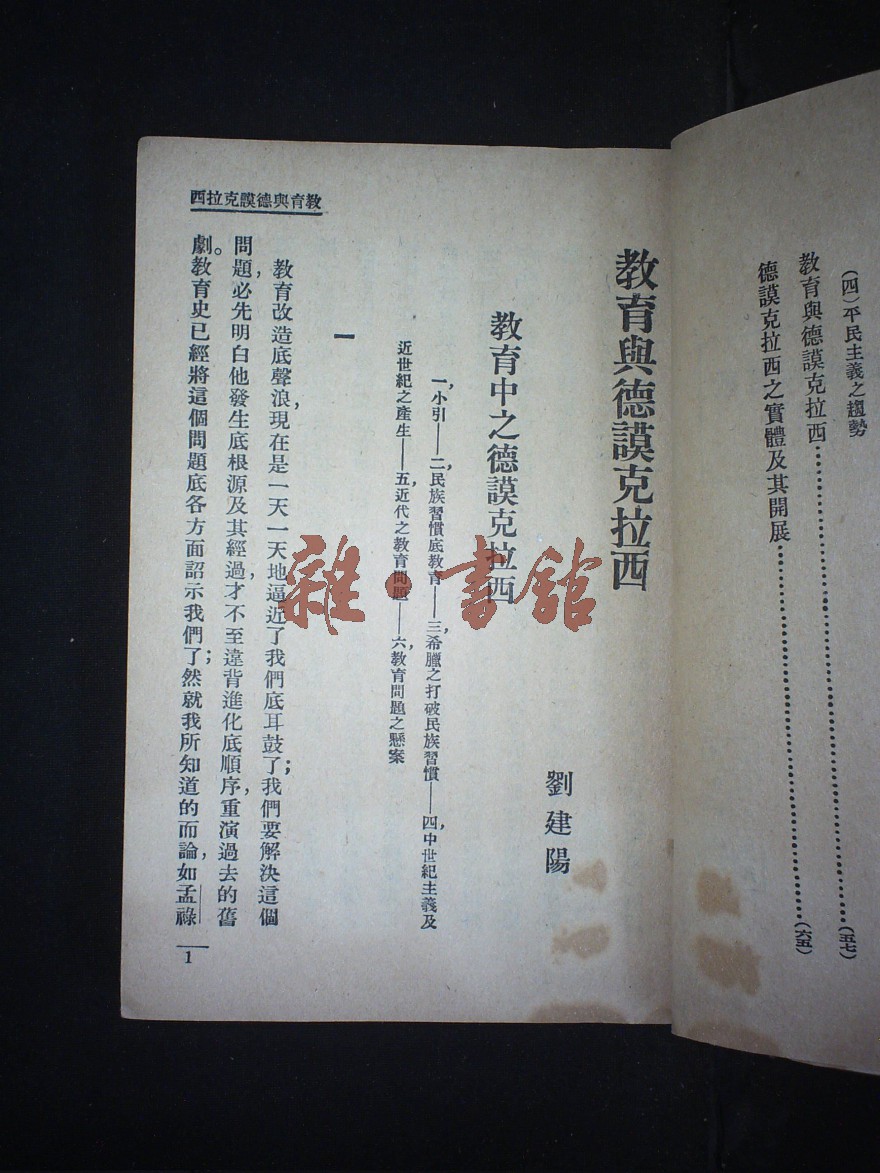 (四)平民主義之趨勢
教育與德謨克拉西……(五七)
德謨克拉西之實體及其開展……(六五)
教育與德謨克拉西
劉建陽
教育中之德謨克拉西
一,小引——二,民族習慣底教育——三,希臘之打破民族習慣——四,中世紀主義及
近世紀之產生——五,近代之教育問題——六,教育問題之懸案
一
教育改造底聲浪,現在是一天一天地逼近了我們底耳鼓了;我們要解決這個
問題,必先明白他發生底根源及其經過,才不至違背進化底順序,重演過去的舊
劇。教育史已經將這個問題底各方面詔示我們了;然就我所知道的而論,如孟祿
教育與德謨克拉西
1
雜·書館